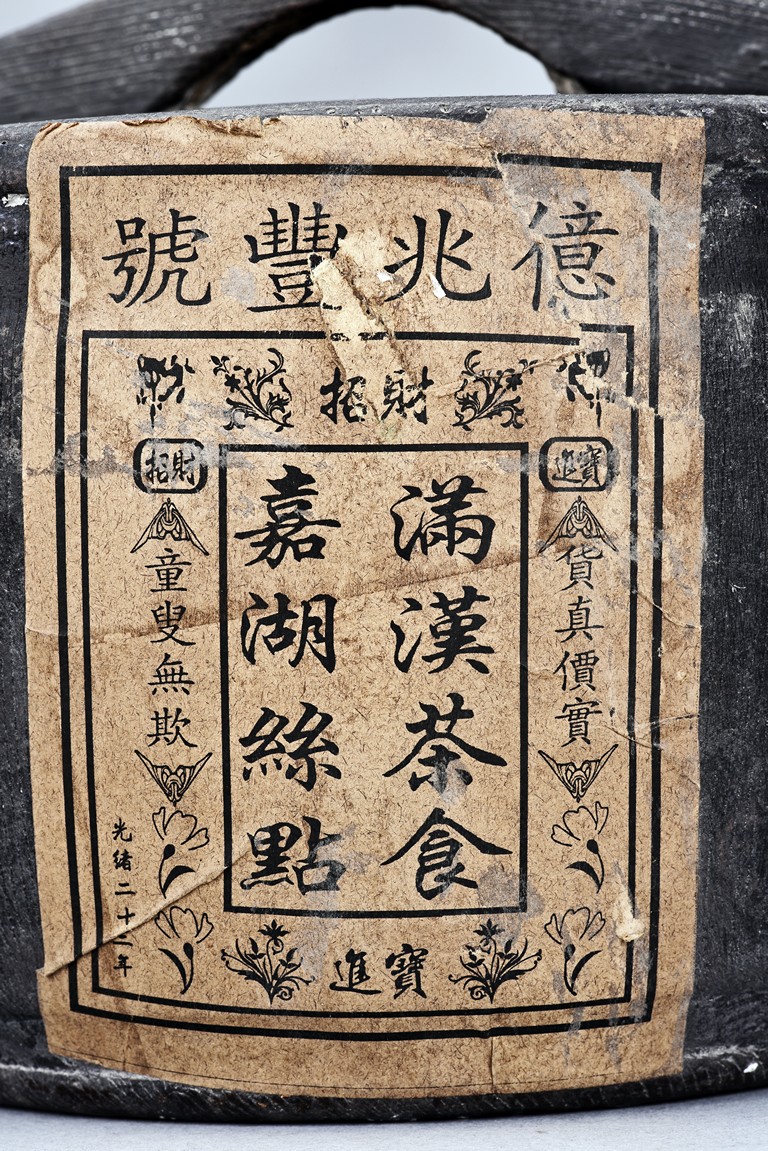 億兆豐號
招財
進寶
貨真價實
滿漢茶食
嘉湖絲點
招財
童叟無欺
光緒二十二年
進寶